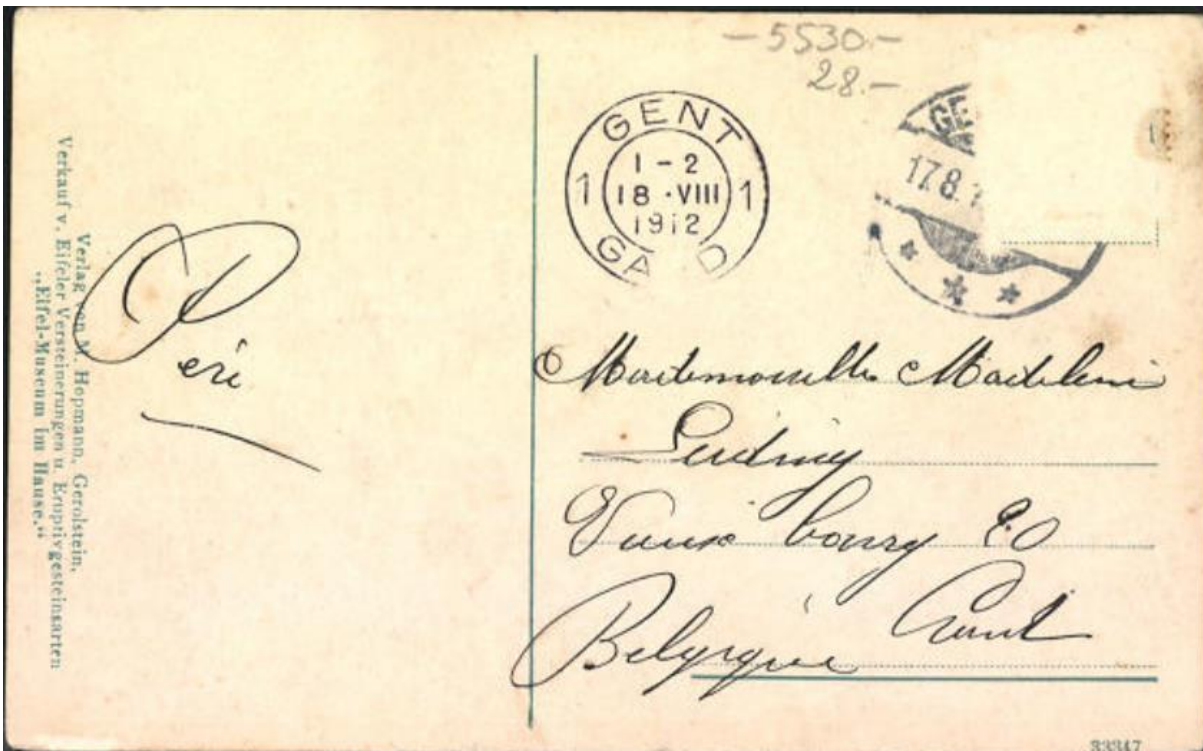 -5530.-
28.-
GENT
1 - 2
1 18 · VIII 1
1912
GA D
GE
17.8.1
Verlag von M. Hopmann, Gerolstein.
Verkauf v. Eifeler Versteinerungen u. Eruptivgesteinsarten
„Eifel-Museum im Hause.“
Mademoiselle Madeleine
Vieux bourg 20
Gand
Belgique
33347